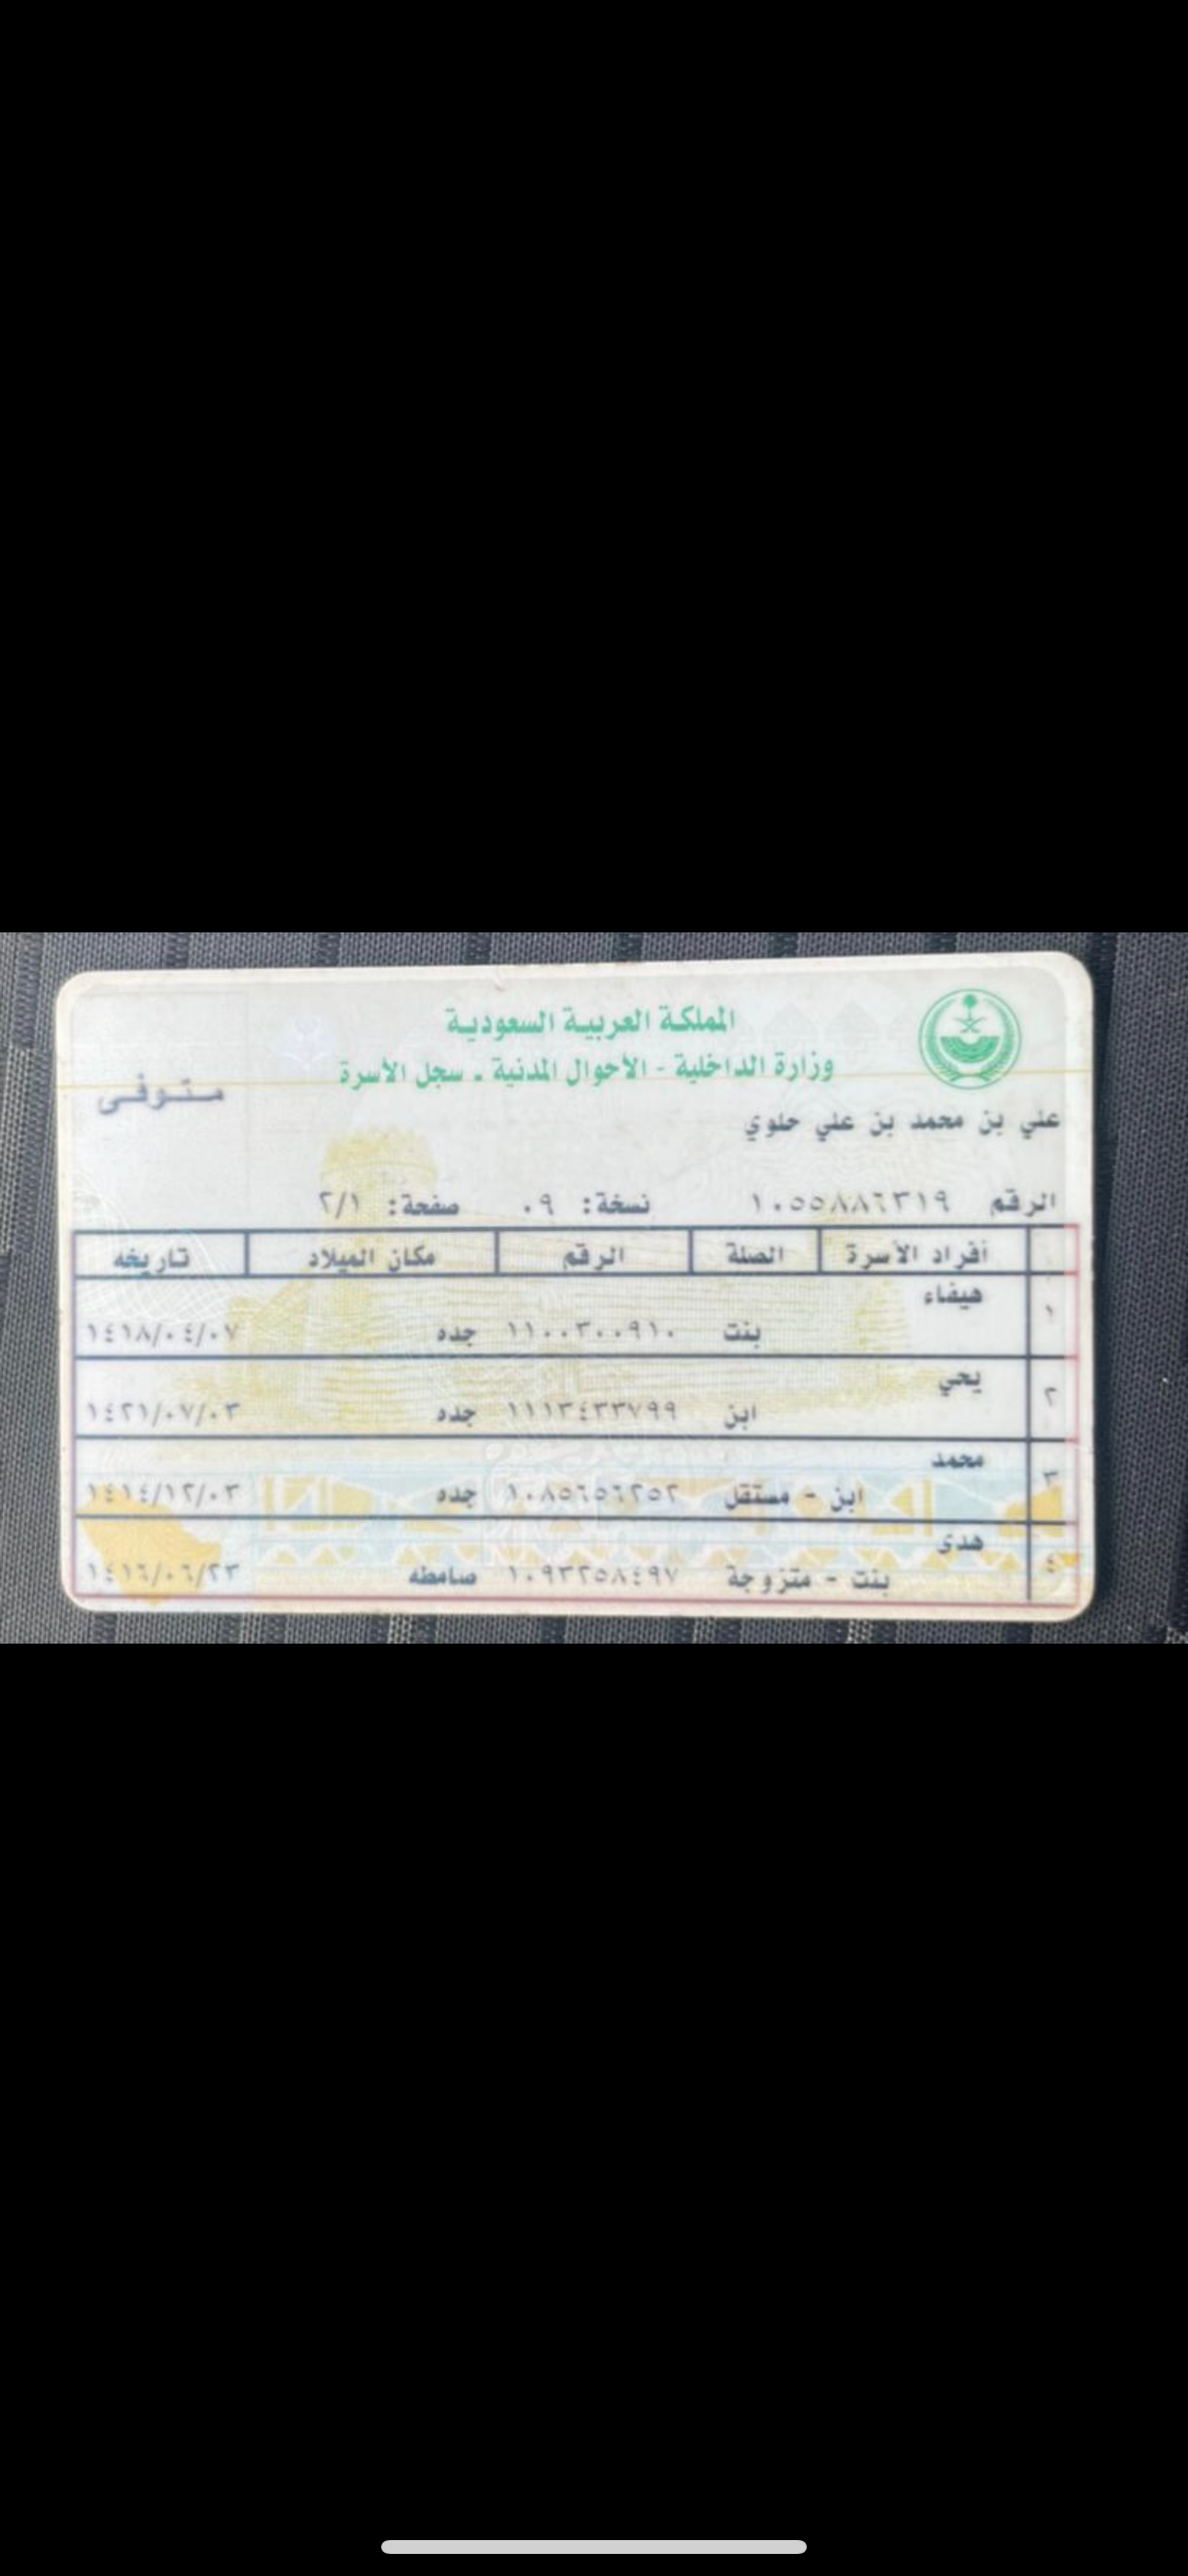 المملكة العربية السعودية
وزارة الداخلية - الأحوال المدنية - سجل الأسرة
متوفى
علي بن محمد بن علي حلوي
الرقم ١٠٥٥٨٨٦٣١٩ نسخة: ٠٩ صفحة: ٢/١
أفراد الأسرة الصلة الرقم مكان الميلاد تاريخه
١ هيفاء
بنت ١١٠٠٣٠٠٩١٠ جده ١٤١٨/٠٤/٠٧
٢ يحي
ابن ١١١٣٤٣٣٧٩٩ جده ١٤٢١/٠٧/٠٣
٣ محمد
ابن - مستقل ١٠٨٥٦٥٦٢٥٢ جده ١٤١٤/١٢/٠٣
٤ هدى
بنت - متزوجة ١٠٩٣٢٥٨٤٩٧ صامطه ١٤١٦/٠٦/٢٣